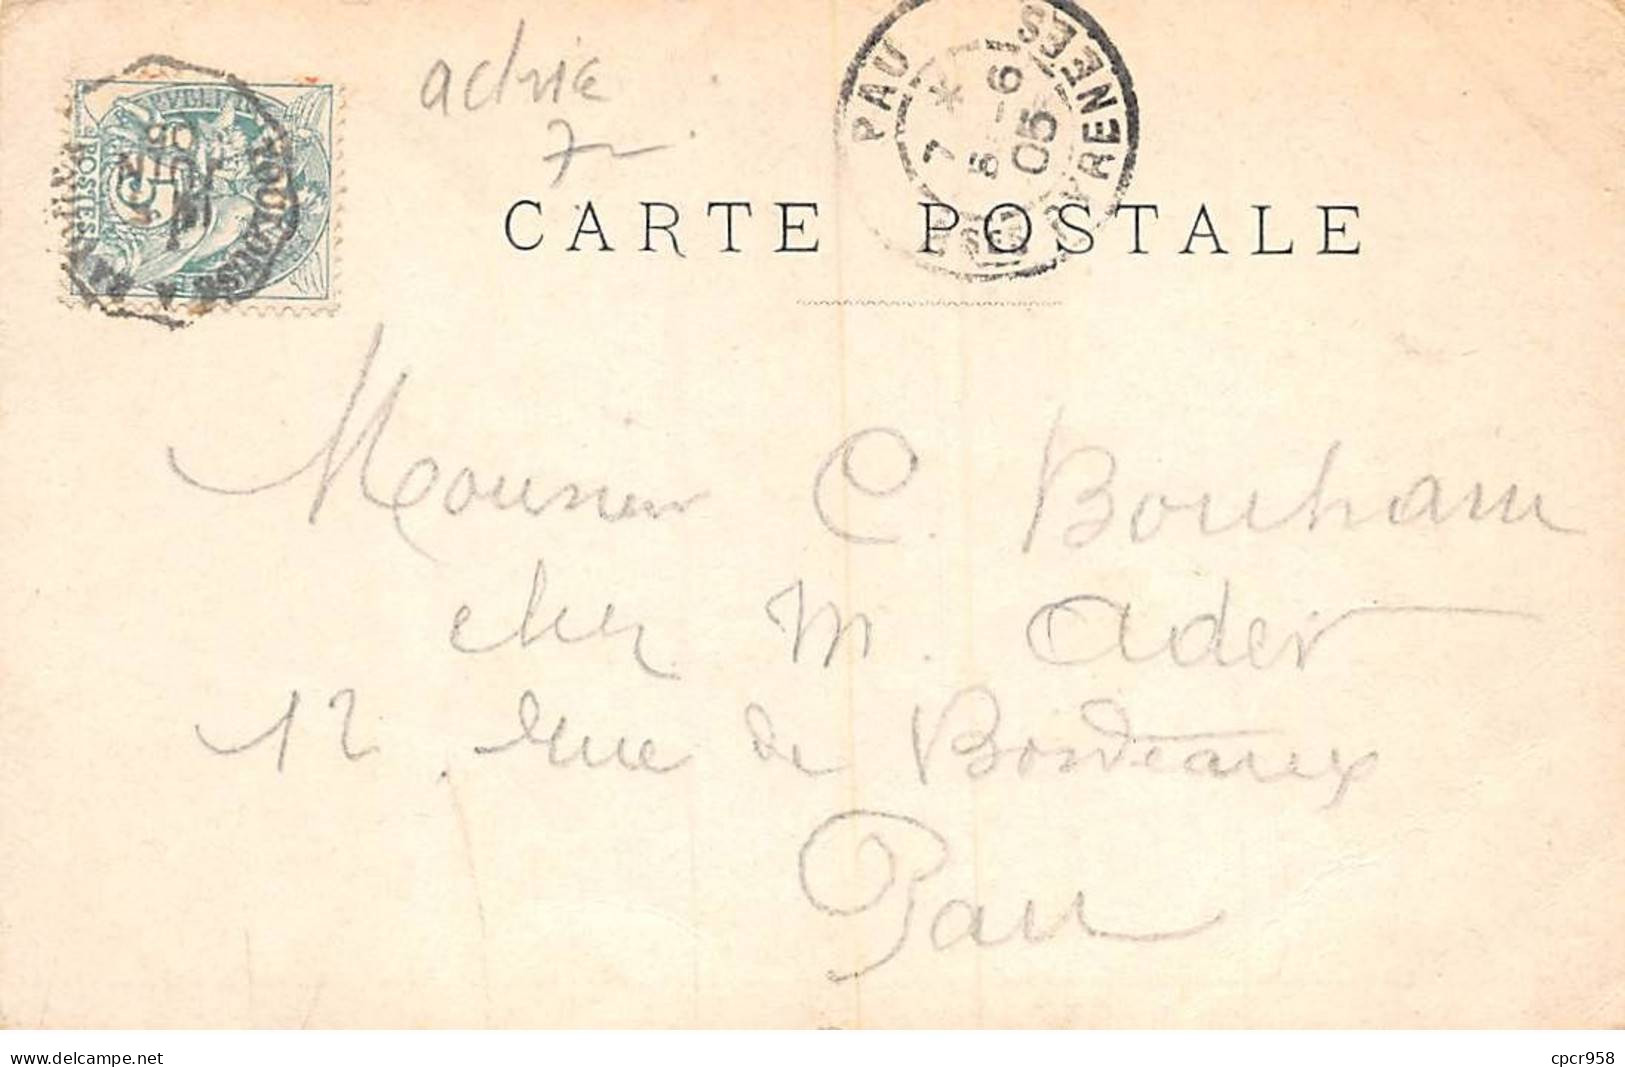 POSTES
5
TOULOUSE A
JUIN
05
actrice
7
PAU
PYRENEES
7 * 5 -6 05
CARTE POSTALE
Monsieur C. Bouhain
chez M. Ader
12, rue de Bordeaux
Pau
www.delcampe.net
cpcr958